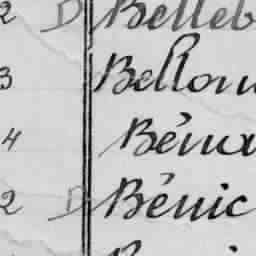 2 D Belleb
3 Bellom
4 Béna
2 D Bénic